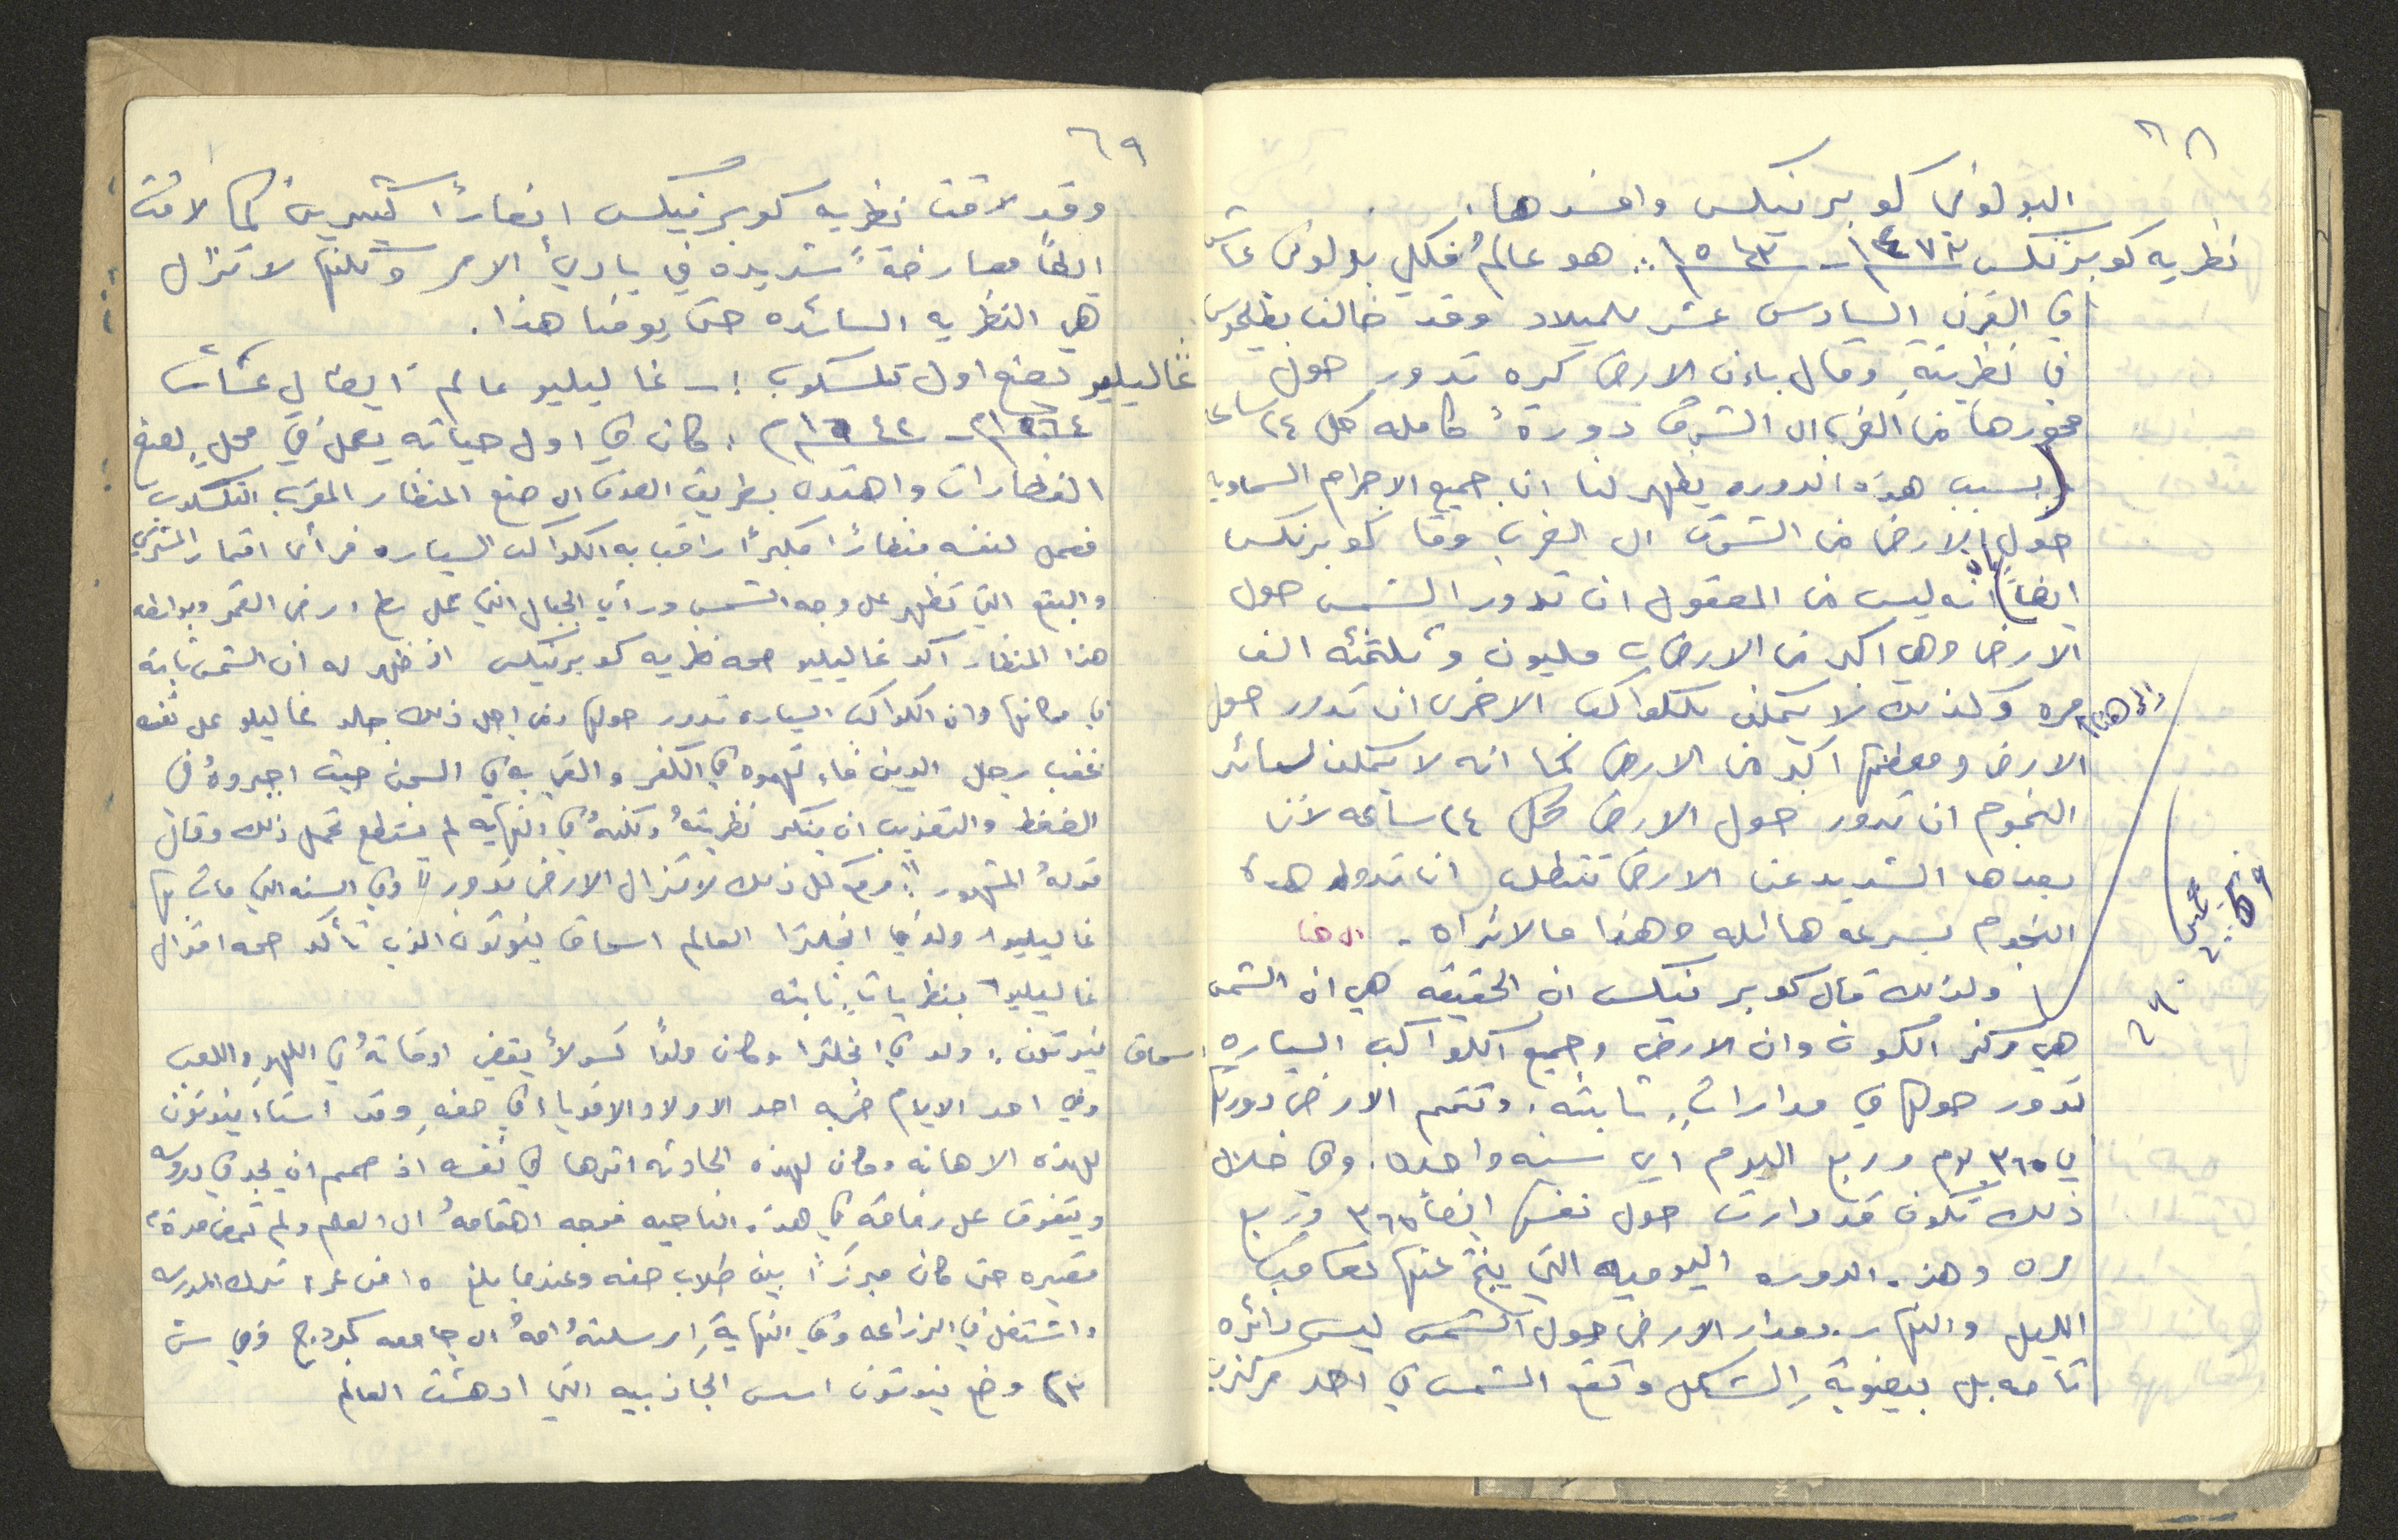 ٦٨
البولوني كوبرنيكس وافسدها.
نظريه كوبرنكس ١٤٧٣ - ١٥٤٣ :. هو عالمٌ فلكي بولوني عاش
في القرن السادس عشر للميلاد وقد خالف بطليموس
في نظريتهِ وقال بان الارض كره تدور حول
محورها من الغرب الى الشرق دورةً كامله كل ٢٤ ساعه
(بسبب هذه الدوره يظهر لنا ان جميع الاجرام السماويه
حول الارض من الشرق الى الغرب وقا كوبرنكس
ايضاً) انه ليس من المعقول ان تدور الشمس حول
الارض وهي اكبر من الارض ب مليون و ثلثمئه الف
مره وكذلك لا يمكن للكواكب الاخرى ان تدور حول
الى هنا
الارض ومعظمها اكبر من الارض كما انه لا يمكن لسائر
النجوم ان تدور حول الارض كل ٢٤ ساعه لأن
بعدها الشديد عن الارض تتطلب ان تدور هذه
النجوم بسرعه هائله وهذا مالا نراه . الى هنا
ولذلك قال كوبرنيكس ان الحقيقه هي ان الشمس
هي مركز الكون وان الارض وجميع الكواكب السياره
تدور حولها في مداراتٍ ثابته . وتتمم الارض دورتها
في ٣٦٥ يوم وربع اليوم اي سنه واحده . وفي خلال
ذلك تكون قد دارت حول نفسها ايضاً ٣٦٥ وربع
مره وهذه الدوره اليوميه التي ينتج عنها تعاقب
الليل والنهار . ومدار الارض حول الشمس ليس دائره
تامه بل بيضوية الشكل وتقع الشمس في احد مركزيه
٦٩
وقد لاقت نظريه كوبرنيكس انصاراً كثيرين كما لاقت
ايضاً معارضةً شديده في باديْ الامر ولكنها لا تزال
هي النظريه السائده حتى يومنا هذا .
غاليليو يصنع اول تلسكوب :- غاليليو عالم ايطالي عاش
١٥٦٤ - ١٦٤٢م . كان في اول حياته يعمل في محلٍ لصنع
النظارات واهتدى بطريق الصدف الى صنع المنظار المقرب التلسكوب
فعمل لنفسه منظاراً مكبراً راقب به الكواكب السياره فرأى اقمار المشتري
والبقع التي تظهر على وجه الشمس ورأى الجبال التي على سطح ارض القمر وبواسطه
هذا المنظار اكد غاليليو صحه نظريه كوبرنيكس اذ ظهر له ان الشمس ثابته
في مكانها وان الكواكب السياره تدور حولها ومن اجل ذلك جلب غاليلو على نفسه
غضب رجل الدين فاتهموه في الكفر والقي به في السجن حيث اجبروهُ من
الضغط والتعذيب ان ينكر نظريتهُ ولكنهُ في النهايه لم يستطع تحمل ذلك وقال
قولهُ المشهور :" ومع كل ذلك لا تزال الارض تدور " وفي السنه التي مات بها
غاليليو ولد في انجلترا العالم اسحاق نيوتون الذي تأكد صحه اقوال
غاليليو بنظرياتٍ ثابته
اسحاق نيوتن : ولد في انجلترا وكان ولداً كسولاً يقضي اوقاتهُ في اللهو واللعب
وفي احد الايام ضربه احد الاولاد الاقويا في صفهِ وقد استاء نيوتون
لهذه الاهانه وكان لهذه الحادثه اثرها في نفسه اذ صمم ان يجد في دروسه
ويتفوق على رفاقه في هذه الناحيه فوجه اهتمامهُ الى العلم ولم تمض مدة
قصيره حتى كان مبرزاً بين طلاب صفه وعندما بلغ ١٥ من عمره ترك المدرسه
واشتغل في الزراعه وفي النهاية ارسلتهُ امهُ الى جامعه كمبردج وفي سن
٢٣ وضع نيوتون اسس الجاذبيه التي ادهشت العالم